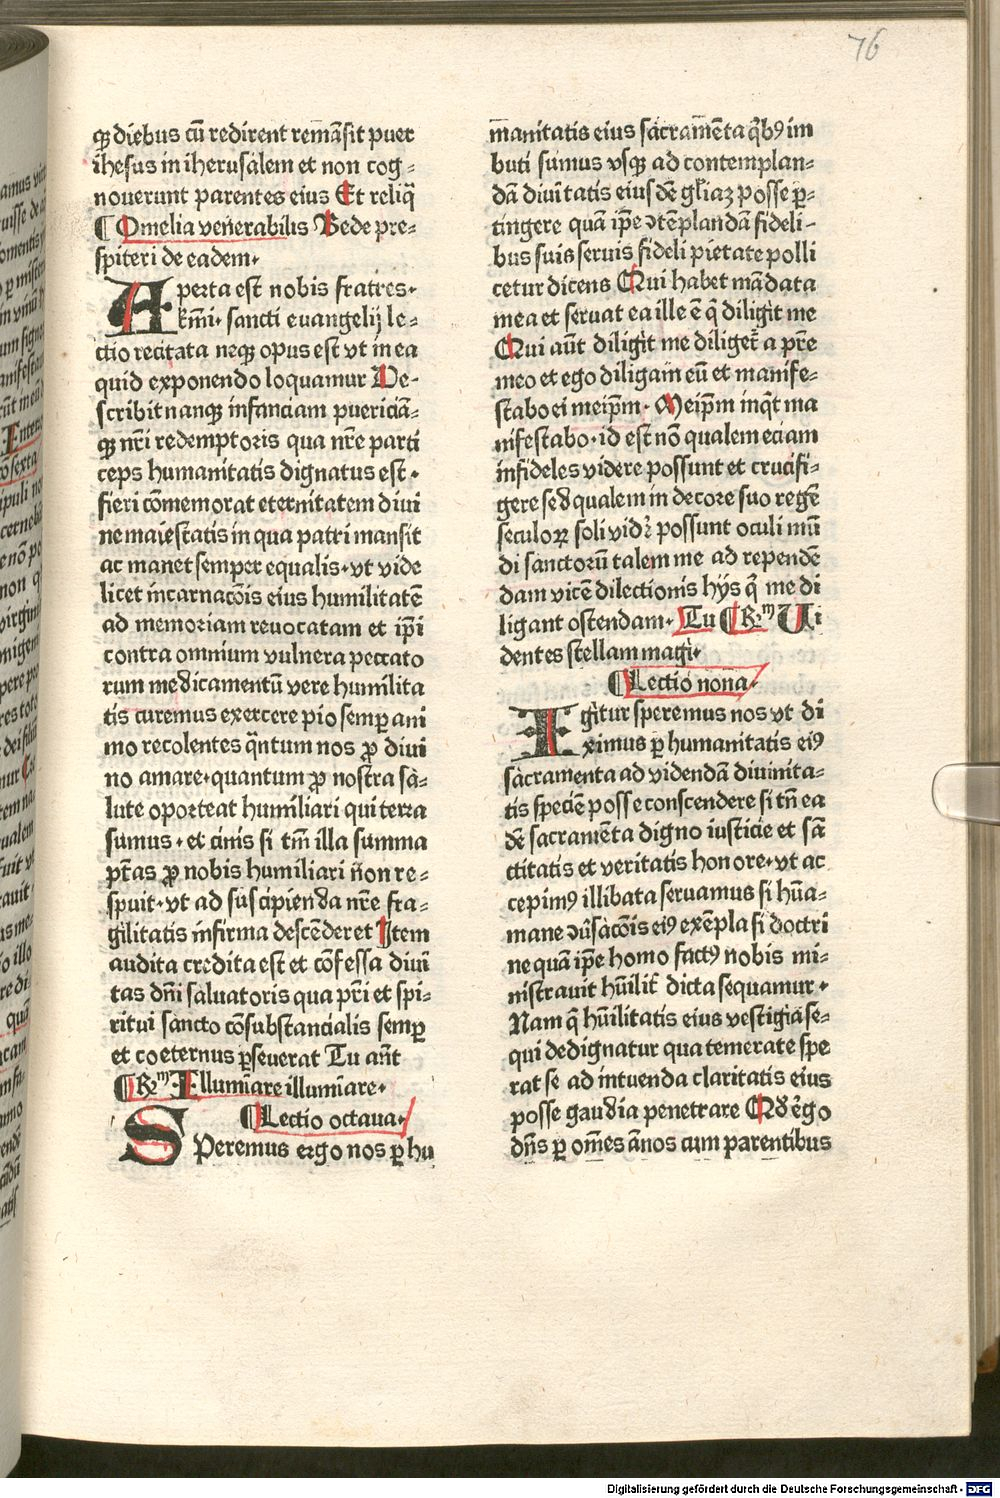 76
qꝫ diebus cū redirent remāsit puer
ihesus in iherusalem et non cog⸗
nouerunt parentes eius Et reliq̄
¶ Omelia venerabilis Bede pre⸗
spiteri de eadem.
Aperta est nobis fratres.
kr̄mi. sancti euangelij le⸗
ctio recitata neqꝫ opus est vt in ea
quid exponendo loquamur De⸗
scribit nanqꝫ infanciam puericiā⸗
qꝫ nr̄i redemptoris qua nr̄e parti
ceps humanitatis dignatus est.
fieri cōmemorat eternitatem diui
ne maiestatis in qua patri mansit
ac manet semper equalis. vt vide
licet incarnacōis eius humilitatē
ad memoriam reuocatam et ip̄i
contra omnium vulnera peccato
rum medicamentū vere humilita
tis curemus exercere pio semꝑ ani
mo recolentes q̄ntum nos ꝓ diui
no amare. quantum ꝓ nostra sa⸗
lute oporteat humiliari qui terra
sumus. et cinis si tm̄ illa summa
pt̄as ꝓ nobis humiliari non re⸗
spuit. vt ad suscipienda nr̄e fra⸗
gilitatis infirma descēderet Item
audita credita est et cōfessa diui
tas dn̄i saluatoris qua pr̄i et spi⸗
ritui sancto cōsubstancialis semꝑ
et coeternus ꝑseuerat Tu aūt
¶ Rm Illuminare illuminare.
¶ Lectio octaua.
Speremus ergo nos ꝑ hu
manitatis eius sacramēta q̄bꝰ im
buti sumus vsqꝫ ad contemplan⸗
dā diuītatis eius dē gl̄iaꝫ posse ꝑ⸗
tingere quā ip̄e ɔtēplandā fideli⸗
bus suis seruis fideli pietate polli
cetur dicens Qui habet mādata
mea et seruat ea ille ē q̄ diligit me
Qui aūt diligit me diliget̄ a pr̄e
meo et ego diligam eū et manife⸗
stabo ei meip̄m. Meip̄m inq̄t ma
nifestabo. id est nō qualem eciam
infideles videre possunt et crucifi⸗
gere sed qualem in decore suo regē
seculoꝝ soli vider̄ possunt oculi mū
di sanctorū talem me ad rependē
dam vicē dilectionis hijs q̄ me di
ligant ostendam. Tu ¶ Rm Ui
dentes stellam magi.
¶ Lectio nona.
Igitur speremus nos vt di
ximus ꝑ humanitatis eiꝰ
sacramenta ad videndā diuinita⸗
tis speciē posse conscendere si tn̄ ea
dē sacramēta digno iusticie et sā
ctitatis et veritatis honore. vt ac
cepimꝰ illibata seruamus si hūa⸗
mane ɔūsacōis eiꝰ exēpla si doctri
ne quā ip̄e homo factꝰ nobis mi⸗
nistrauit hūilit̄ dicta sequamur.
Nam q̄ hūilitatis eius vestigia se⸗
qui dedignatur qua temerate spe
rat se ad intuenda claritatis eius
posse gaudia penetrare Qd ergo
dn̄s ꝑ om̄es ānos cum parentibus
Digitalisierung gefördert durch die Deutsche Forschungsgemeinschaft - DFG